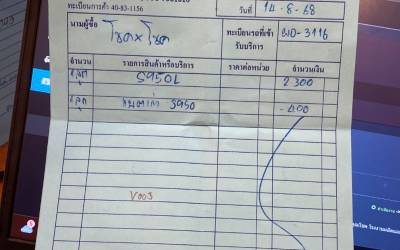 ทะเบียนการค้า 40-83-1156
วันที่ 14-8-68
นามผู้ซื้อ โชค x โชค
ทะเบียนรถที่เข้ารับบริการ -3916
จำนวน รายการสินค้าหรือบริการ ราคาต่อหน่วย จำนวนเงิน
1ลูก S95DL 2300
1ลูก S95D -400
V003